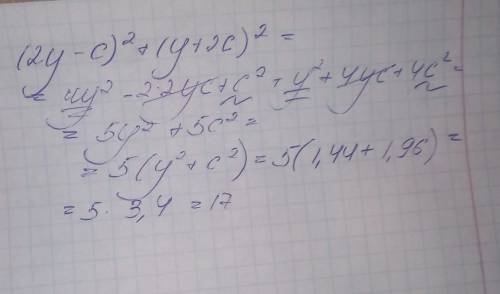 (2y-c)²+(y+2c)²=
=4y²-2·2yc+c²+y²+4yc+4c²=
=5y²+5c²=
=5(y²+c²)=5(1,44+1,96)=
=5·3,4=17